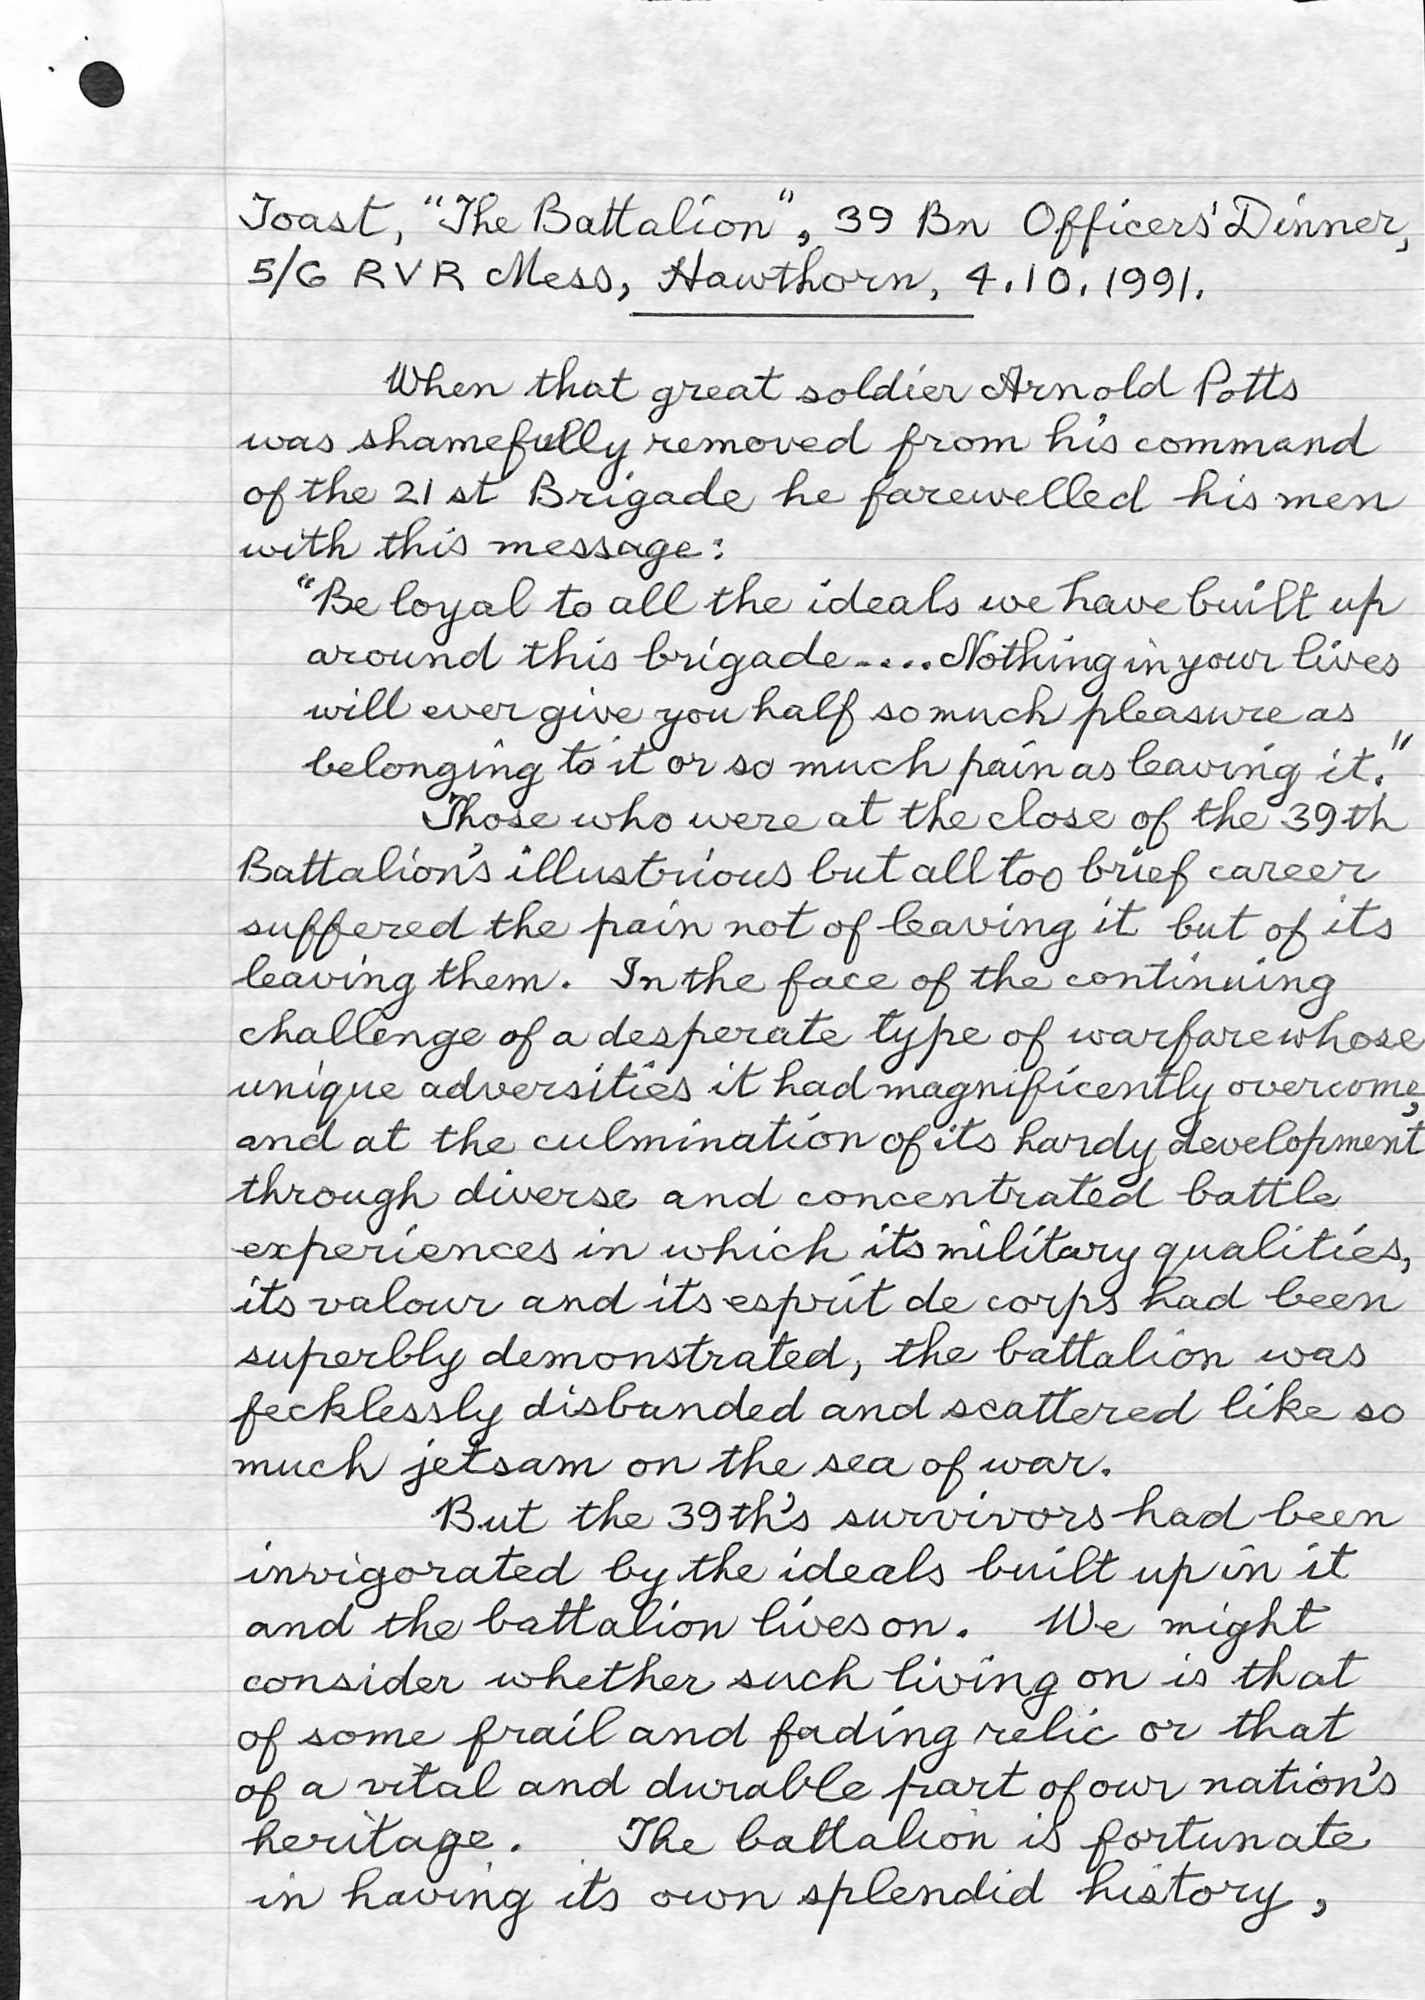 Toast, "The Battalion", 39 Bn Officers' Dinner,
5/6 RVR Mess, Hawthorn, 4.10.1991.
When that great soldier Arnold Potts
was shamefully removed from his command
of the 21st Brigade he farewelled his men
with this message:
"Be loyal to all the ideals we have built up
around this brigade.... Nothing in your lives
will ever give you half so much pleasure as
belonging to it or so much pain as leaving it."
Those who were at the close of the 39th
Battalion's illustrious but all too brief career
suffered the pain not of leaving it but of its
leaving them. In the face of the continuing
challenge of a desperate type of warfare whose
unique adversities it had magnificently overcome,
and at the culmination of its hardy development
through diverse and concentrated battle
experiences in which its military qualities,
its valour and its esprit de corps had been
superbly demonstrated, the battalion was
fecklessly disbanded and scattered like so
much jetsam on the sea of war.
But the 39th's survivors had been
invigorated by the ideals built up in it
and the battalion lives on. We might
consider whether such living on is that
of some frail and fading relic or that
of a vital and durable part of our nation's
heritage. The battalion is fortunate
in having its own splendid history,